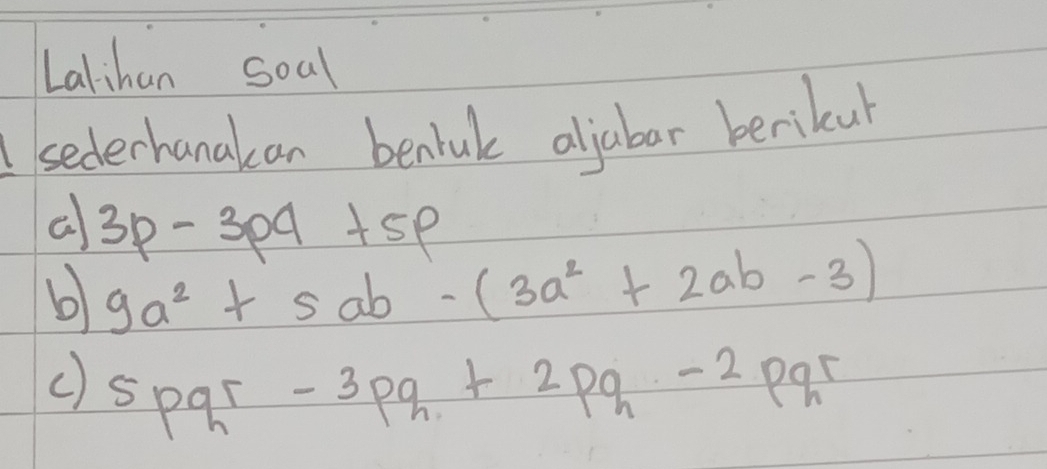 Latihan Soal
1 sederhanakan bentuk aljabar berikut
a) 3p - 3pq + 5p
b) 9a² + 5ab - (3a² + 2ab - 3)
c) 5pqr - 3pq + 2pq - 2pqr